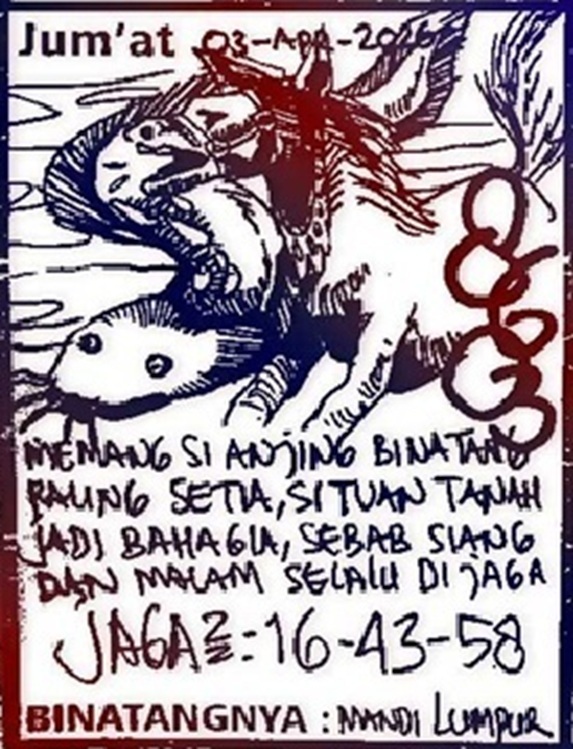 Jum'at 03-APR-2026
MEMANG SI ANJING BINATANG
PALING SETIA, SI TUAN TANAH
JADI BAHAGIA, SEBAB SIANG
DAN MALAM SELALU DI JAGA
JAGA2:16-43-58
BINATANGNYA : MANDI LUMPUR